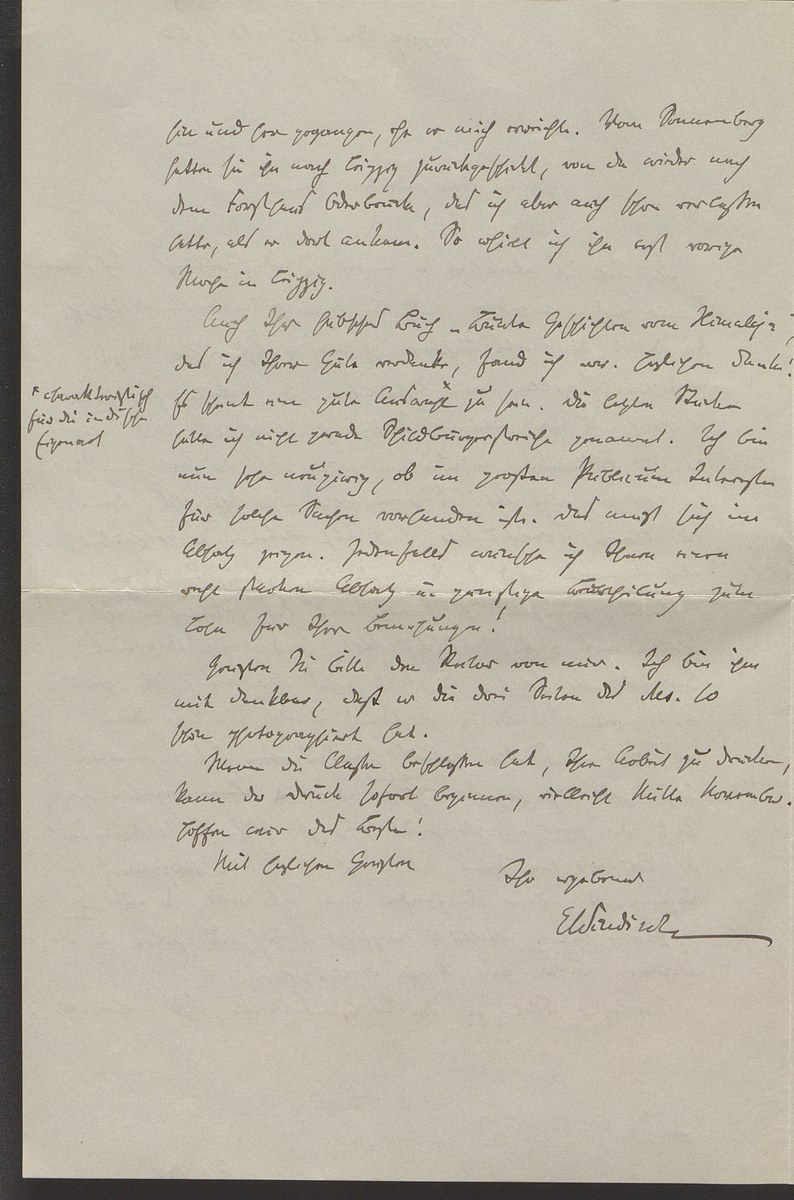 hin und her gegangen, ehe er mich erreichte. Vom Sonnenberg
hatten sie ihn nach Leipzig zurückgeschickt, von da wieder nach
dem Forsthaus Oderbrück, das ich aber auch schon verlassen
hatte, als er dort ankam. So erhielt ich ihn erst vorige
Woche in Leipzig.
Auch Ihr hübsches Buch „Bunte Geschichten vom Himalaja",
das ich Ihrer Güte verdanke, fand ich vor. Herzlichen Dank!
Es scheint eine gute Auswahl* zu sein. Die letzten Stücke
hätte ich nicht gerade Schildbürgerstreiche genannt. Ich bin
* charakteristisch
für die indische
Eigenart
nun sehr neugierig, ob im großen Publicum Interesse
für solche Sachen vorhanden ist. Das muß sich im
Absatz zeigen. Jedenfalls wünsche ich Ihnen einen
recht starken Absatz u. günstige Beurtheilung zum
Lohn für Ihre Bemühungen!
Grüßen Sie bitte den von mir. Ich bin ihm
mit dankbar, daß er die drei Seiten des Ms. so
schön photographiert hat.
Wenn die Classe beschlossen hat, Ihre Arbeit zu drucken,
kann der Druck sofort beginnen, vielleicht Mitte November.
Hoffen wir das Beste!
Mit herzlichen Grüßen
Ihr ergebener
EWindisch